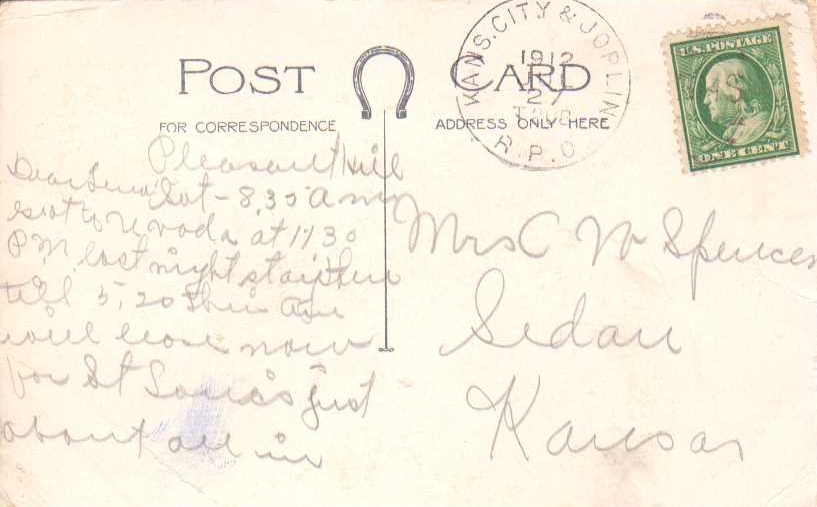 POST CARD
FOR CORRESPONDENCE
ADDRESS ONLY HERE
KANS. CITY & JOPLIN
1912
27
R.P.O.
U.S. POSTAGE
ONE CENT
Pleasant Hill
Dear
Sat - 8,35 Am
got to Nevada at 11 30
PM last night staid there
till 5,20 this am
will leave now
for St Louis just
about all in
Mrs C W Spencer
Sedan
Kansas